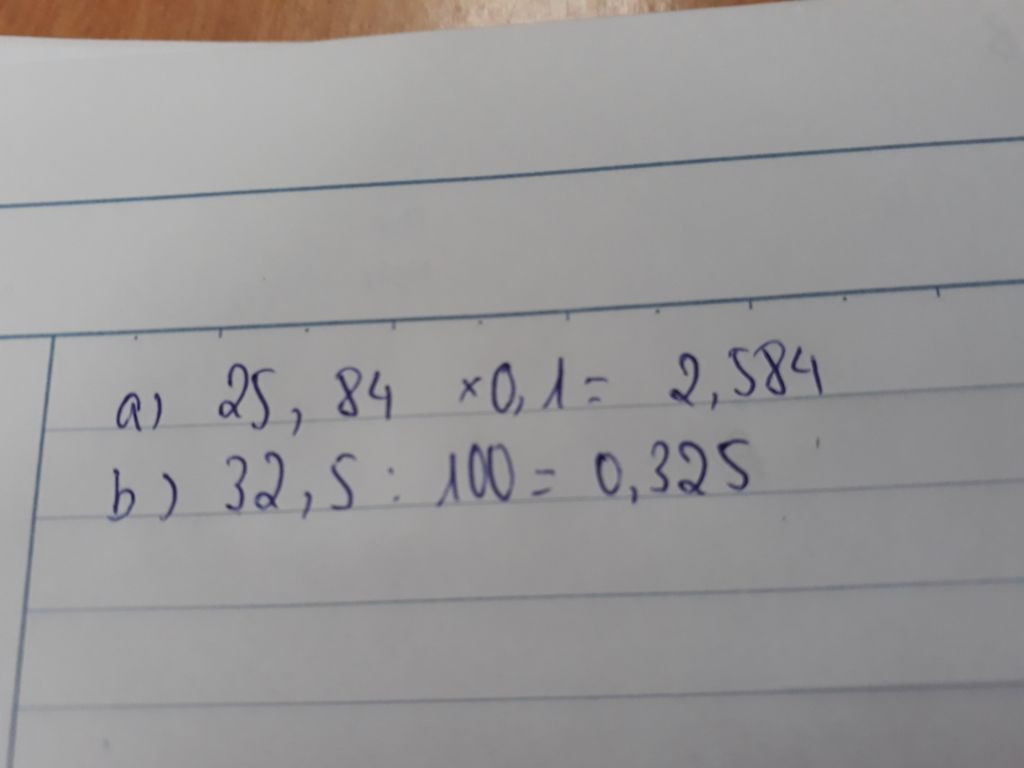 a) 25,84 ×0,1= 2,584
b) 32,5: 100= 0,325